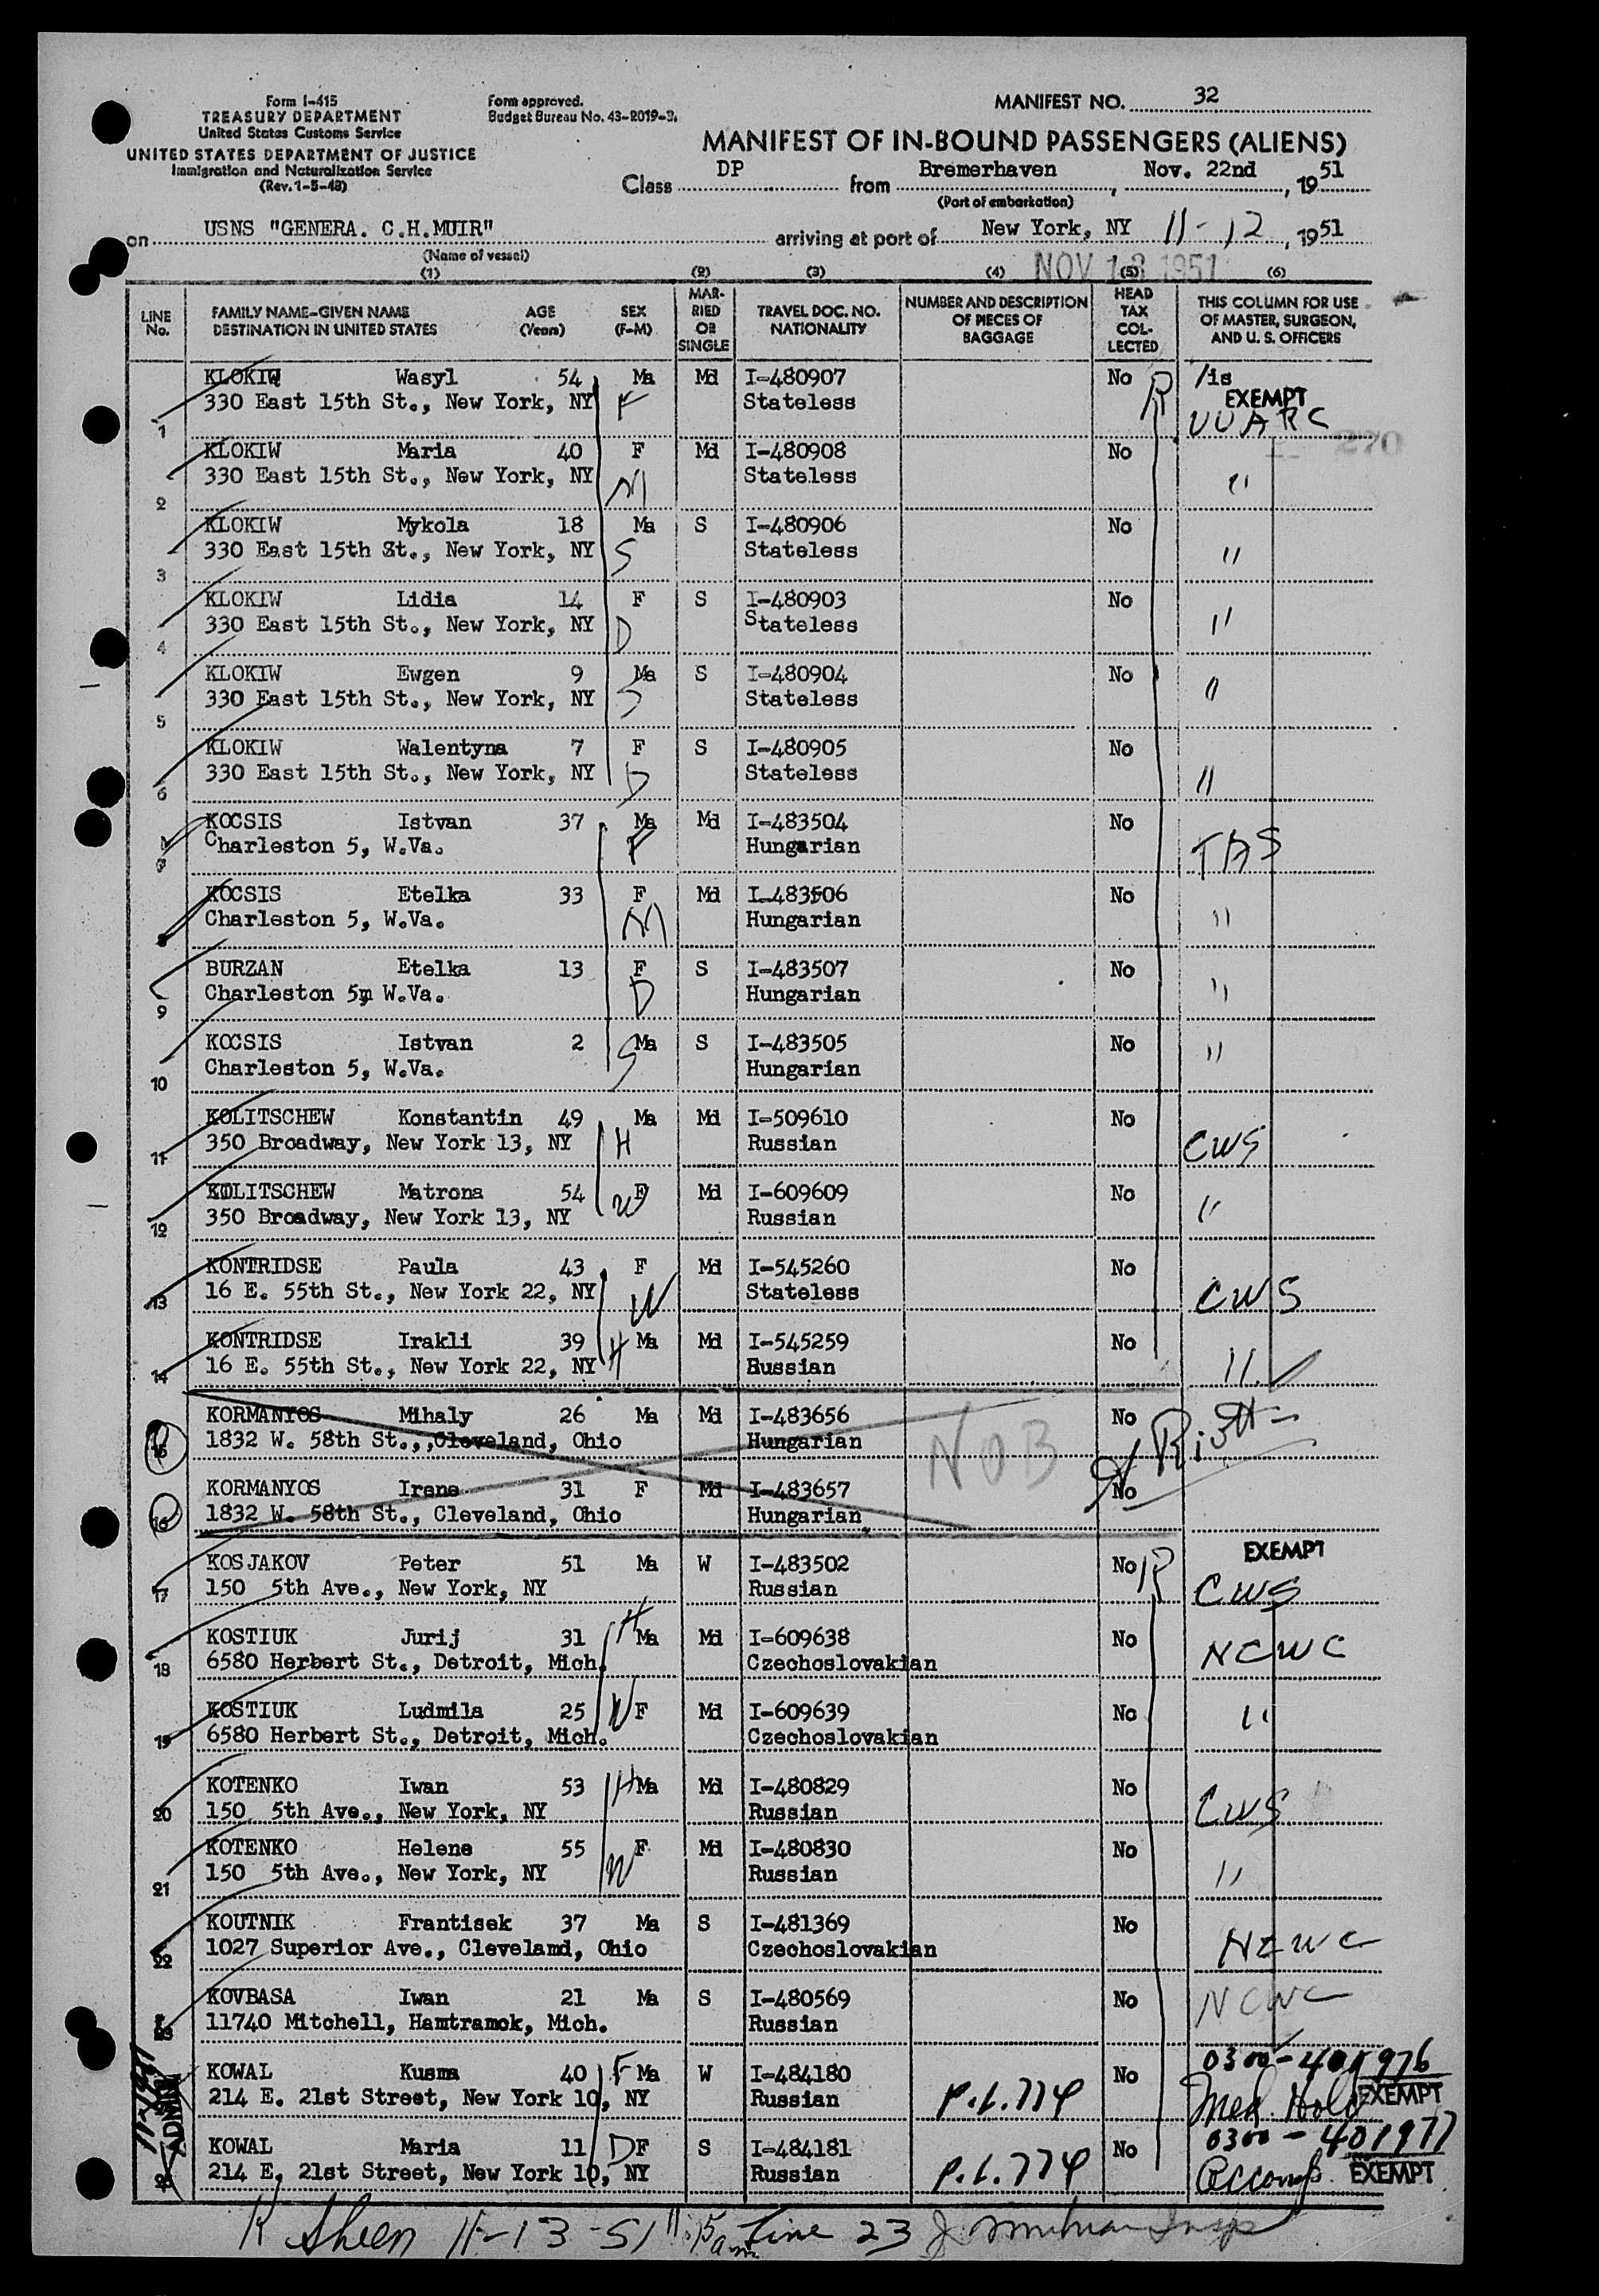 Form I-415
TREASURY DEPARTMENT
United States Customs Service
UNITED STATES DEPARTMENT OF JUSTICE
Immigration and Naturalization Service
(Rev. 1-5-48)
Form approved.
Budget Bureau No. 43-R019-3.
MANIFEST NO. 32
MANIFEST OF IN-BOUND PASSENGERS (ALIENS)
Class DP from Bremerhaven, Nov. 22nd, 1951
(Port of embarkation)
on USNS "GENERA. C.H.MUIR" arriving at port of New York, NY 11-12, 1951
(Name of vessel)
NOV 13 1951
(1) (2) (3) (4) (5) (6)
LINE No. FAMILY NAME-GIVEN NAME DESTINATION IN UNITED STATES AGE (Years) SEX (F-M) MAR-RIED OR SINGLE TRAVEL DOC. NO. NATIONALITY NUMBER AND DESCRIPTION OF PIECES OF BAGGAGE HEAD TAX COL-LECTED THIS COLUMN FOR USE OF MASTER, SURGEON, AND U. S. OFFICERS
KLOKIW Wasyl 54 Ma Md I-480907 No R /is EXEMPT
1 330 East 15th St., New York, NY F Stateless UUARC
270
KLOKIW Maria 40 F Md I-480908 No
2 330 East 15th St., New York, NY M Stateless "
KLOKIW Mykola 18 Ma S I-480906 No
3 330 East 15th St., New York, NY S Stateless "
KLOKIW Lidia 14 F S I-480903 No
4 330 East 15th St., New York, NY D Stateless "
KLOKIW Ewgen 9 Ma S I-480904 No
5 330 East 15th St., New York, NY S Stateless "
KLOKIW Walentyna 7 F S I-480905 No
6 330 East 15th St., New York, NY D Stateless "
KOCSIS Istvan 37 Ma Md I-483504 No
7 Charleston 5, W.Va. F Hungarian TAS
KOCSIS Etelka 33 F Md I-483506 No
8 Charleston 5, W.Va. M Hungarian "
BURZAN Etelka 13 F S I-483507 No
9 Charleston 5m W.Va. D Hungarian "
KOCSIS Istvan 2 Ma S I-483505 No
10 Charleston 5, W.Va. S Hungarian "
KOLITSCHEW Konstantin 49 Ma Md I-509610 No
11 350 Broadway, New York 13, NY H Russian CWS
KOLITSCHEW Matrona 54 F Md I-609609 No
12 350 Broadway, New York 13, NY W Russian "
KONTRIDSE Paula 43 F Md I-545260 No
13 16 E. 55th St., New York 22, NY W Stateless CWS
KONTRIDSE Irakli 39 Ma Md I-545259 No
14 16 E. 55th St., New York 22, NY H Russian "
KORMANYOS Mihaly 26 Ma Md I-483656 No
15 1832 W. 58th St.,,Cleveland, Ohio Hungarian NOB
KORMANYOS Irene 31 F Md I-483657 No
16 1832 W. 58th St., Cleveland, Ohio Hungarian
KOSJAKOV Peter 51 Ma W I-483502 No R EXEMPT
17 150 5th Ave., New York, NY Russian CWS
KOSTIUK Jurij 31 H Ma Md I-609638 No
18 6580 Herbert St., Detroit, Mich. Czechoslovakian NCWC
KOSTIUK Ludmila 25 W F Md I-609639 No
19 6580 Herbert St., Detroit, Mich. Czechoslovakian "
KOTENKO Iwan 53 H Ma Md I-480829 No
20 150 5th Ave., New York, NY Russian CWS
KOTENKO Helene 55 F Md I-480830 No
21 150 5th Ave., New York, NY W Russian "
KOUTNIK Frantisek 37 Ma S I-481369 No
22 1027 Superior Ave., Cleveland, Ohio Czechoslovakian NCWC
KOVBASA Iwan 21 Ma S I-480569 No NCWC
23 11740 Mitchell, Hamtramck, Mich. Russian
KOWAL Kusma 40 F Ma W I-484180 No 0300-401976
214 E. 21st Street, New York 10, NY Russian P.L.774 Med. Hold EXEMPT
KOWAL Maria 11 D F S I-484181 No 0300-401977
25 214 E, 21st Street, New York 10, NY Russian P.L.774 Accomp. EXEMPT
ADMIN
R Sheen 11-13-51 11:15 am Line 23 J. Insp